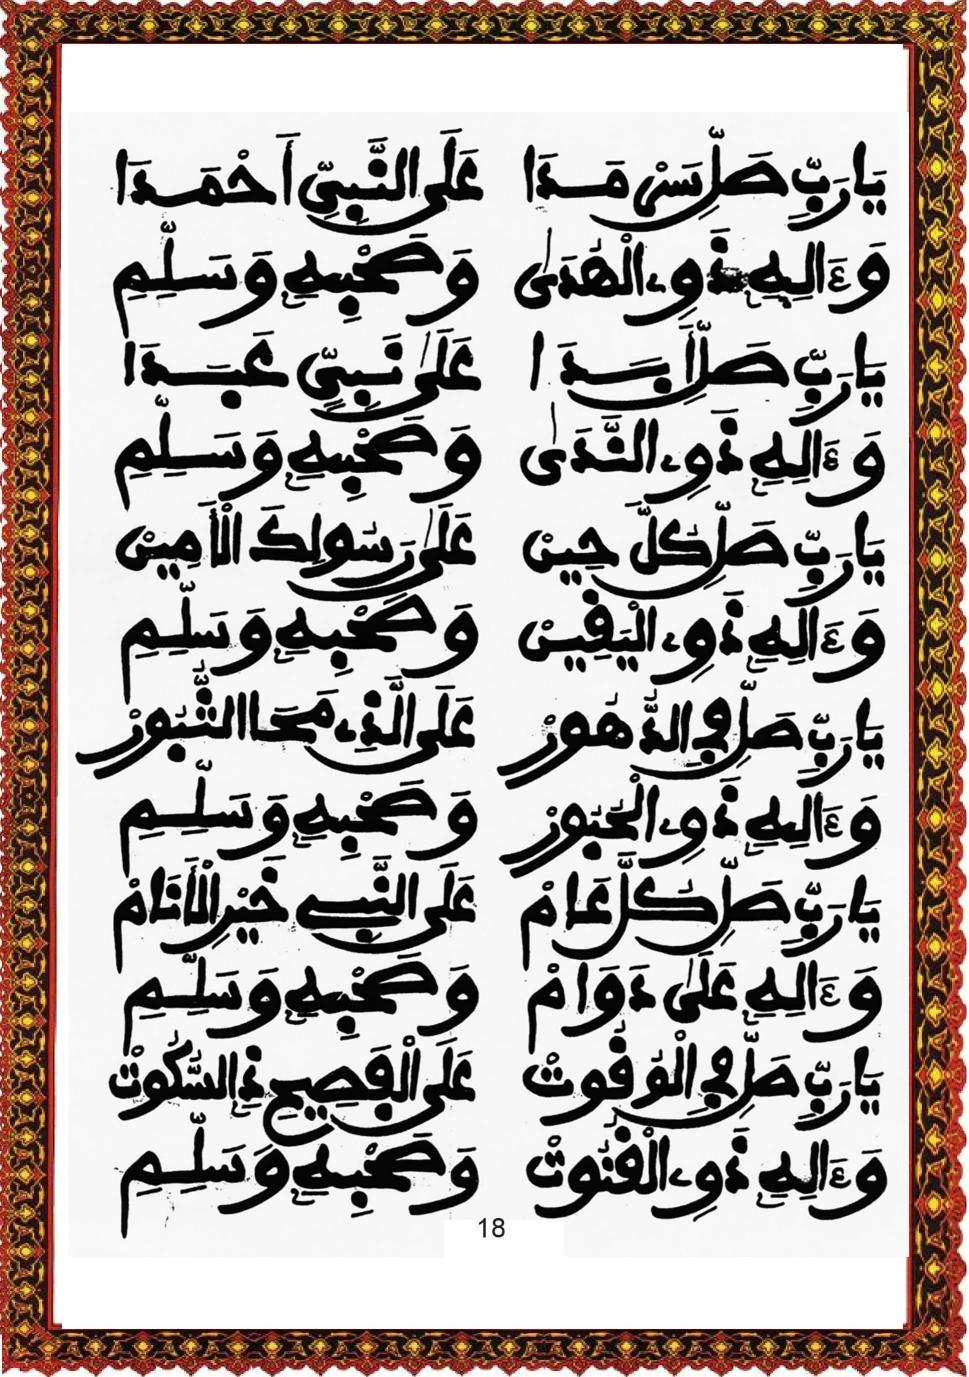 يَارَبِّ صَلِّ سَرْمَدَا عَلَى النَّبِيِّ أَحْمَدَا
وَءَالِهِ ذَوِے الْهُدَىٰ وَصَحْبِهِ وَسَلِّمِ
يَارَبِّ صَلِّ أَبَدَا عَلَىٰ نَبِيٍّ عَبَدَا
وَءَالِهِ ذَوِے النَّدَىٰ وَصَحْبِهِ وَسَلِّمِ
يَارَبِّ صَلِّ كُلَّ حِينْ عَلَىٰ رَسُولِكَ الْأَمِينْ
وَءَالِهِ ذَوِے الْيَقِينْ وَصَحْبِهِ وَسَلِّمِ
يَارَبِّ صَلِّ فِي الدُّهُورْ عَلَى الَّذِے مَحَا الثُّبُورْ
وَءَالِهِ ذَوِے الْحُبُورْ وَصَحْبِهِ وَسَلِّمِ
يَارَبِّ صَلِّ كُلَّ عَامْ عَلَى النَّبِي خَيْرِ الْأَنَامْ
وَءَالِهِ عَلَىٰ دَوَامْ وَصَحْبِهِ وَسَلِّمِ
يَارَبِّ صَلِّ فِي الْوُقُوتْ عَلَى الْفَصِيحِ ذِے السُّكُوتْ
وَءَالِهِ ذَوِے الْقُنُوتْ وَصَحْبِهِ وَسَلِّمِ
18